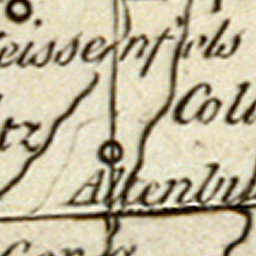 eissenfels
Coll
tz
Altenbu